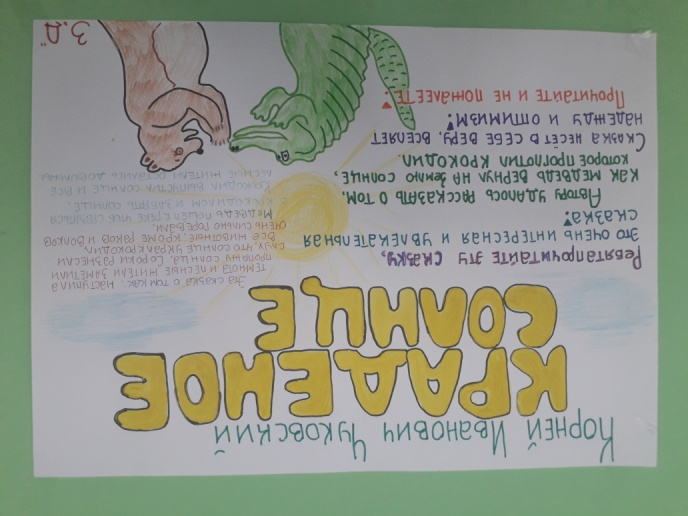 Корней Иванович Чуковский
КРАДЕНОЕ
СОЛНЦЕ
Ребята прочитайте эту сказку,
Это очень интересная и увлекательная
сказка!
Автору удалось рассказать о том,
как медведь вернул на землю солнце,
которое проглотил крокодил.
Сказка несёт в себе веру, вселяет
надежду и оптимизм!
Прочитайте и не пожалеете!
Эта сказка о том как, наступила
темнота и лесные жители заметили
пропажу солнца. Сороки разнесли
слух, что солнце украл крокодил.
Все животные, кроме раков и волков
очень сильно горевали.
Медведь пошел к реке чтоб
с крокодилом и забрать солнце.
Крокодил выпустил солнце и все
лесные жители остались довольны
3 „Д"